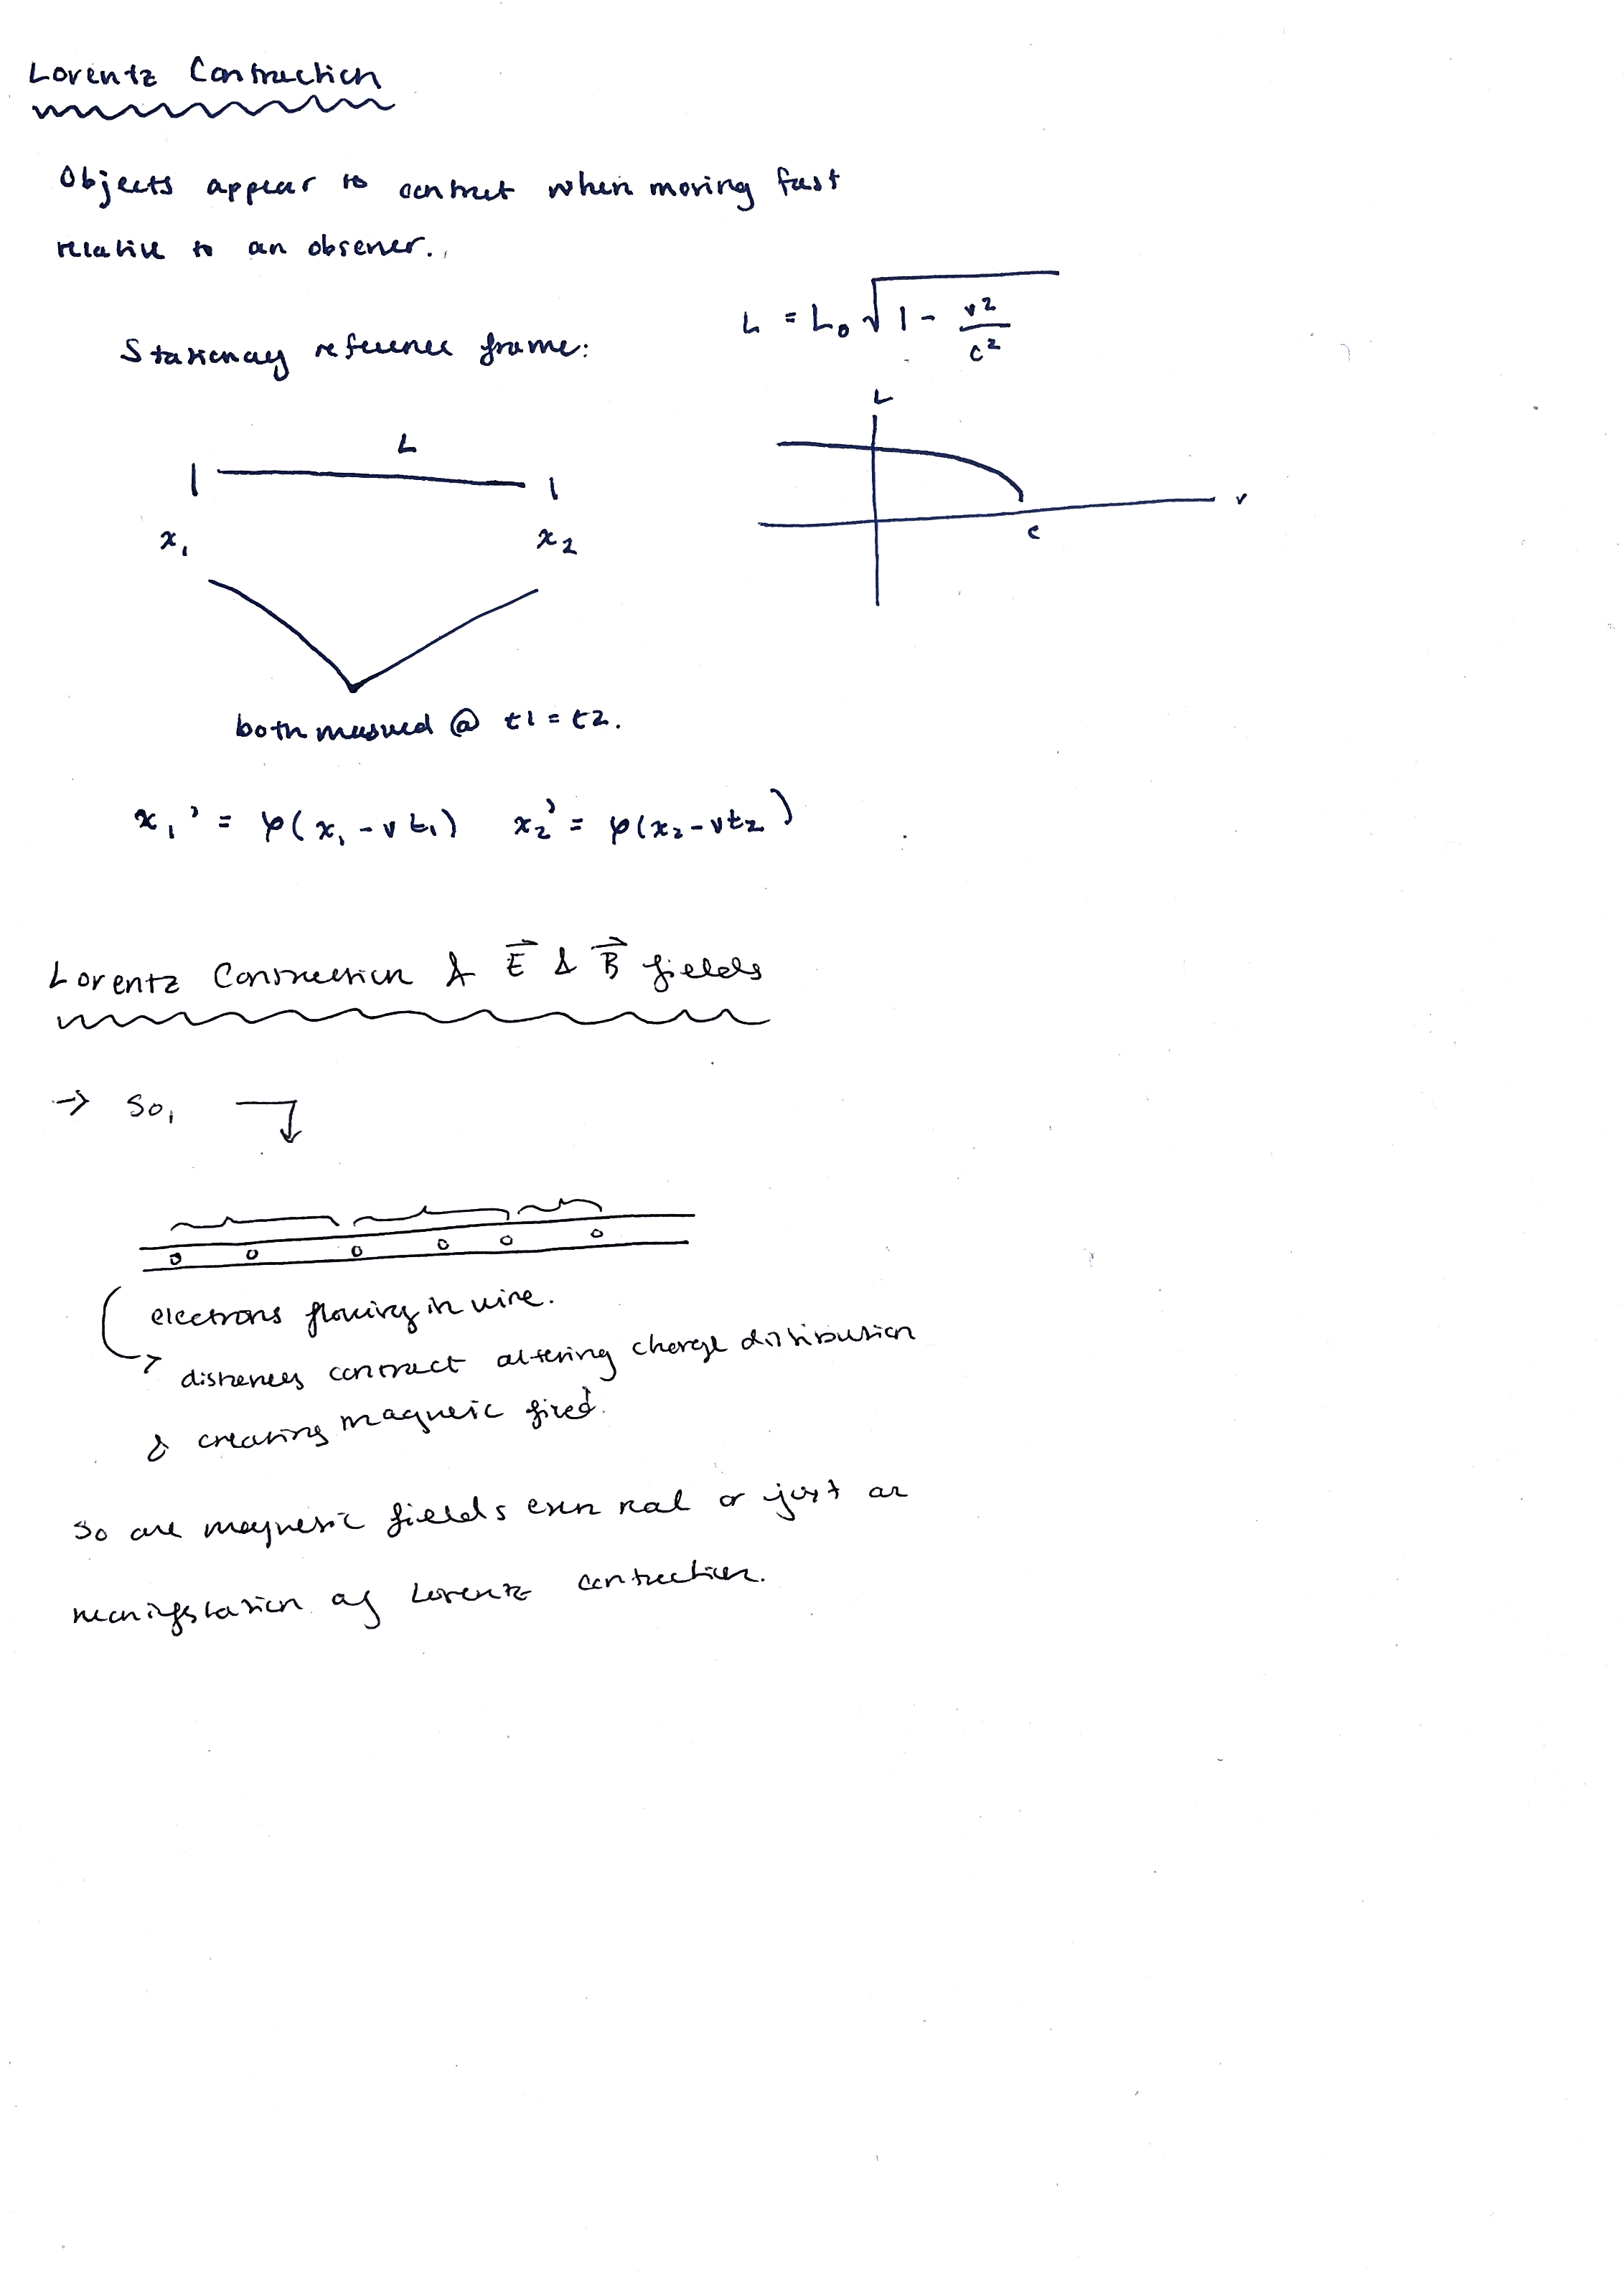 Lorentz Contraction
Objects appear to contract when moving fast
relative to an observer.
L = L₀ √(1 - v²/c²)
Stationary reference frame:
L
L
x₁
x₂
v
c
both measured @ t1 = t2.
x₁' = γ(x₁ - vt₁) x₂' = γ(x₂ - vt₂)
Lorentz Contraction & E⃗ & B⃗ fields
→ So,
electrons flowing in wire.
→ distances contract altering charge distribution
& creating magnetic field.
So are magnetic fields even real or just a
manifestation of Lorentz contraction.